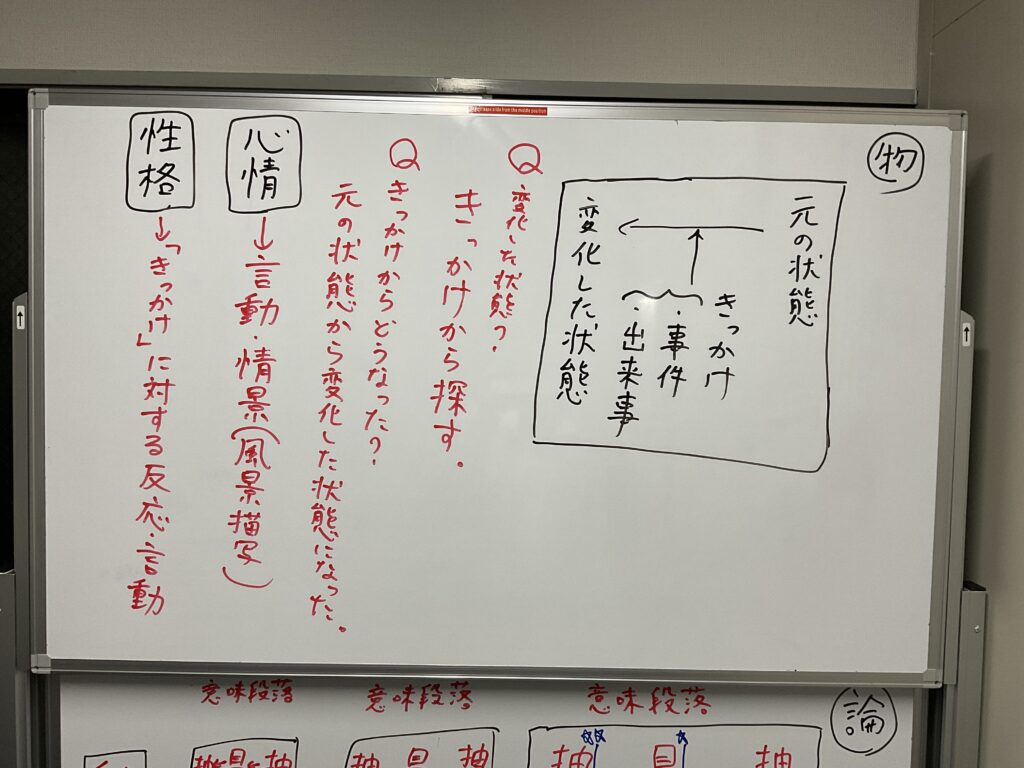 物
元の状態
きっかけ
・事件
・出来事
変化した状態
Q 変化した状態?
きっかけから探す。
Q きっかけからどうなった?
元の状態から変化した状態になった。
心情→言動・情景(風景描写)
性格→「きっかけ」に対する反応・言動
論
意味段落
意味段落
意味段落
抽 具 抽
抽 具 抽